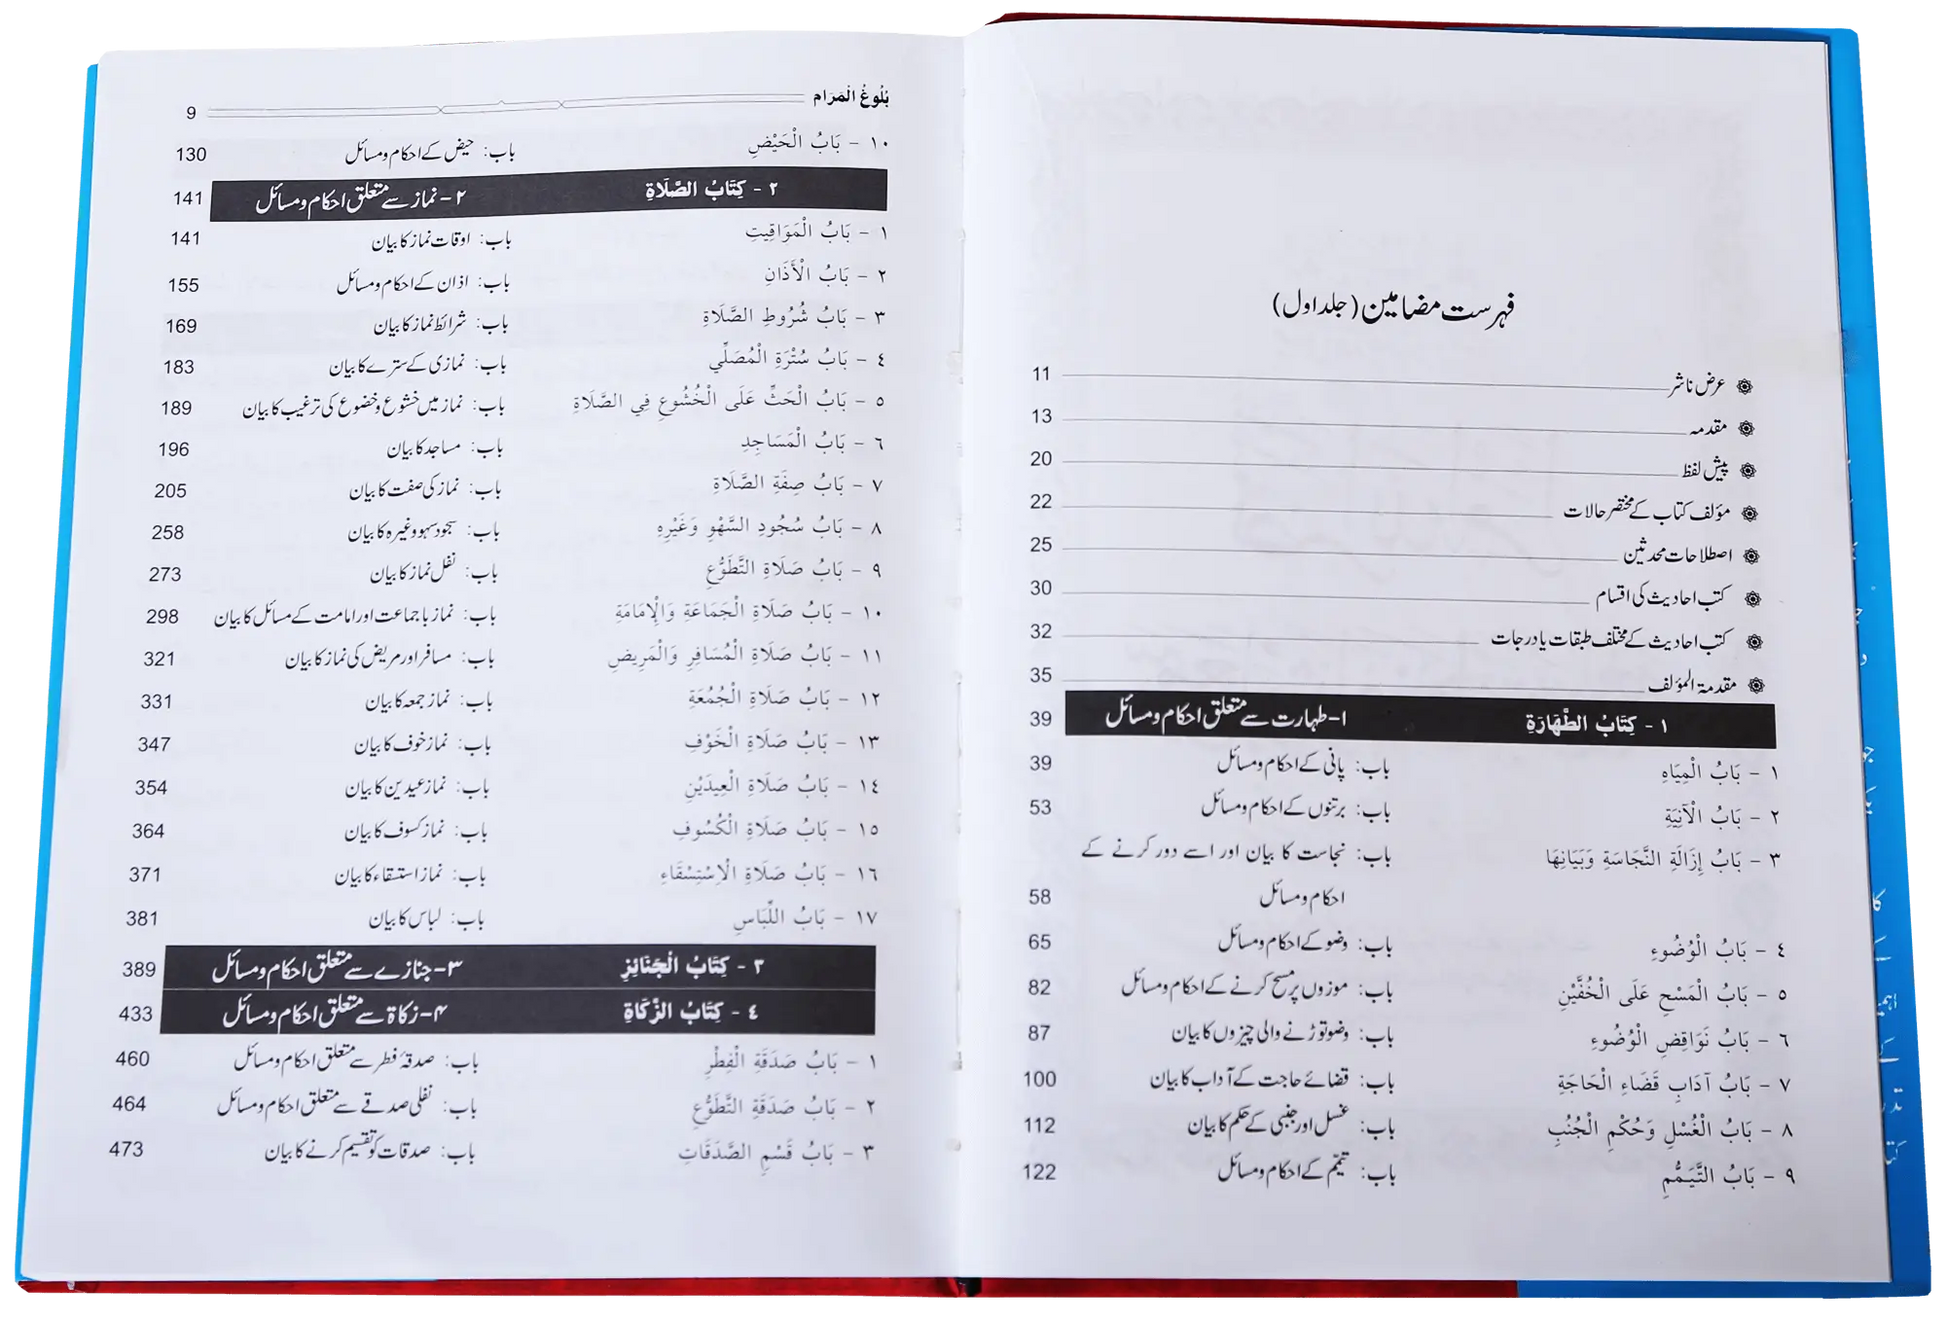 فہرست مضامین (جلد اول)
۞ عرض ناشر 11
۞ مقدمہ 13
۞ پیش لفظ 20
۞ مؤلف کتاب کے مختصر حالات 22
۞ اصطلاحات محدثین 25
۞ کتب احادیث کی اقسام 30
۞ کتب احادیث کے مختلف طبقات یا درجات 32
۞ مقدمۃ المؤلف 35
١ - كِتَابُ الطَّهَارَةِ ۱- طہارت سے متعلق احکام و مسائل 39
١ - بَابُ الْمِيَاهِ باب: پانی کے احکام و مسائل 39
٢ - بَابُ الْآنِيَةِ باب: برتنوں کے احکام و مسائل 53
٣ - بَابُ إِزَالَةِ النَّجَاسَةِ وَبَيَانِهَا باب: نجاست کا بیان اور اسے دور کرنے کے
احکام و مسائل 58
٤ - بَابُ الْوُضُوءِ باب: وضو کے احکام و مسائل 65
٥ - بَابُ الْمَسْحِ عَلَى الْخُفَّيْنِ باب: موزوں پر مسح کرنے کے احکام و مسائل 82
٦ - بَابُ نَوَاقِضِ الْوُضُوءِ باب: وضو توڑنے والی چیزوں کا بیان 87
٧ - بَابُ آدَابِ قَضَاءِ الْحَاجَةِ باب: قضائے حاجت کے آداب کا بیان 100
٨ - بَابُ الْغُسْلِ وَحُكْمِ الْجُنُبِ باب: غسل اور جنبی کے حکم کا بیان 112
٩ - بَابُ التَّيَمُّمِ باب: تیمّم کے احکام و مسائل 122
بُلُوغُ الْمَرَام 9
١٠ - بَابُ الْحَيْضِ باب: حیض کے احکام و مسائل 130
٢ - كِتَابُ الصَّلَاةِ ۲- نماز سے متعلق احکام و مسائل 141
١ - بَابُ الْمَوَاقِيتِ باب: اوقات نماز کا بیان 141
٢ - بَابُ الْأَذَانِ باب: اذان کے احکام و مسائل 155
٣ - بَابُ شُرُوطِ الصَّلَاةِ باب: شرائط نماز کا بیان 169
٤ - بَابُ سُتْرَةِ الْمُصَلِّي باب: نمازی کے سترے کا بیان 183
٥ - بَابُ الْحَثِّ عَلَى الْخُشُوعِ فِي الصَّلَاةِ باب: نماز میں خشوع و خضوع کی ترغیب کا بیان 189
٦ - بَابُ الْمَسَاجِدِ باب: مساجد کا بیان 196
٧ - بَابُ صِفَةِ الصَّلَاةِ باب: نماز کی صفت کا بیان 205
٨ - بَابُ سُجُودِ السَّهْوِ وَغَيْرِهِ باب: سجود سہو وغیرہ کا بیان 258
٩ - بَابُ صَلَاةِ التَّطَوُّعِ باب: نفل نماز کا بیان 273
١٠ - بَابُ صَلَاةِ الْجَمَاعَةِ وَالْإِمَامَةِ باب: نماز باجماعت اور امامت کے مسائل کا بیان 298
١١ - بَابُ صَلَاةِ الْمُسَافِرِ وَالْمَرِيضِ باب: مسافر اور مریض کی نماز کا بیان 321
١٢ - بَابُ صَلَاةِ الْجُمُعَةِ باب: نماز جمعہ کا بیان 331
١٣ - بَابُ صَلَاةِ الْخَوْفِ باب: نماز خوف کا بیان 347
١٤ - بَابُ صَلَاةِ الْعِيدَيْنِ باب: نماز عیدین کا بیان 354
١٥ - بَابُ صَلَاةِ الْكُسُوفِ باب: نماز کسوف کا بیان 364
١٦ - بَابُ صَلَاةِ الْاِسْتِسْقَاءِ باب: نماز استسقاء کا بیان 371
١٧ - بَابُ اللِّبَاسِ باب: لباس کا بیان 381
٣ - كِتَابُ الْجَنَائِزِ ۳- جنازے سے متعلق احکام و مسائل 389
٤ - كِتَابُ الزَّكَاةِ ۴- زکاۃ سے متعلق احکام و مسائل 433
١ - بَابُ صَدَقَةِ الْفِطْرِ باب: صدقۂ فطر سے متعلق احکام و مسائل 460
٢ - بَابُ صَدَقَةِ التَّطَوُّعِ باب: نفلی صدقے سے متعلق احکام و مسائل 464
٣ - بَابُ قَسْمِ الصَّدَقَاتِ باب: صدقات کو تقسیم کرنے کا بیان 473